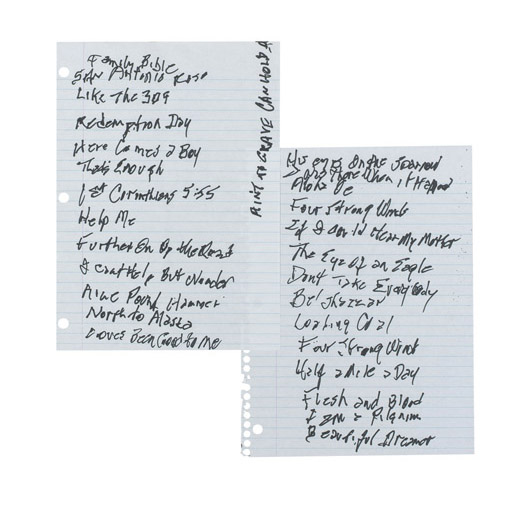 Family Bible
San Antonio Rose
Like The 309
Redemption Day
Here Comes a Boy
That's Enough
1st Corinthians 5:55
Help Me
Further On Up the Road
I can't Help But Wonder
Nine Pound Hammer
North to Alaska
Love's Been Good to Me
AIN'T NO GRAVE CAN HOLD
His eyes on the Sparrow
I was There When it Happend
Aloha Oe
Four Strong Winds
If I could Hear My Mother
The Eye Of an Eagle
Don't Take Everybody
Belshazzar
Loading Coal
Four Strong Wind
Half a Mile a Day
Flesh and Blood
I am a Pilgrim
Beautiful Dreamer